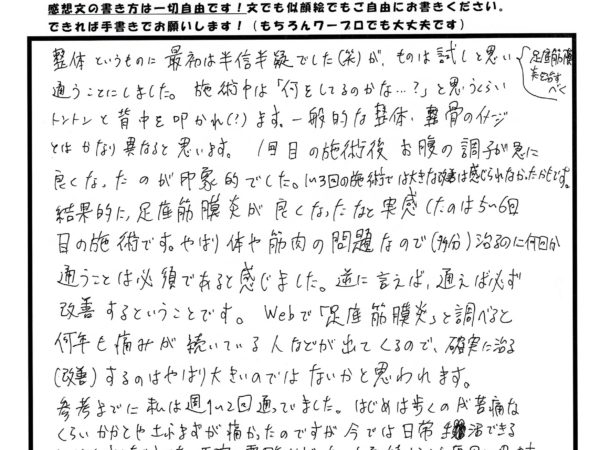 感想文の書き方は一切自由です！文でも似顔絵でもご自由にお書きください。
できれば手書きでお願いします！（もちろんワープロでも大丈夫です）
整体というものに最初は半信半疑でした(笑)が、ものは試しと思い
足底筋膜
炎を治す
べく
通うことにしました。施術中は「何をしてるのかな…？」と思うくらい
トントンと背中を叩かれ(？)ます。一般的な整体、整骨のイメージ
とはかなり異なると思います。1回目の施術後お腹の調子が急に
良くなったのが印象的でした。1〜3回の施術では大きな改善は感じられなかったかもです。
結果的に、足底筋膜炎が良くなったなと実感したのは5〜6回
目の施術です。やはり体や筋肉の問題なので(多分)治るのに何回か
通うことは必須であると感じました。逆に言えば、通えば必ず
改善するということです。Webで「足底筋膜炎」と調べると
何年も痛みが続いている人などが出てくるので、確実に治る
(改善)するのはやはり大きいのではないかと思われます。
参考までに私は週1〜2回通っていました。はじめは歩くのが苦痛な
くらいかかとや土ふまずが痛かったのですが今では日常生活できる